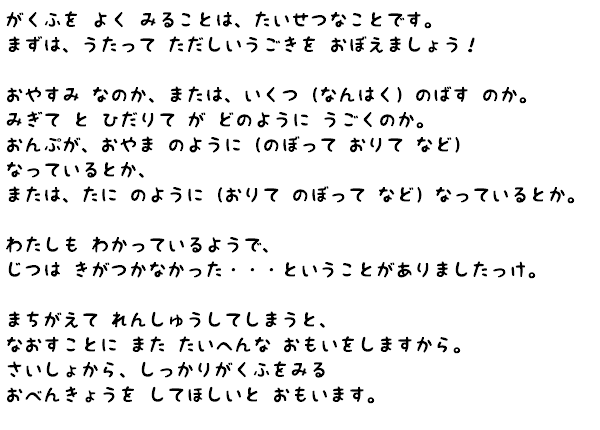 がくふを よく みることは、たいせつなことです。
まずは、うたって ただしいうごきを おぼえましょう！
おやすみ なのか、または、いくつ（なんはく）のばす のか。
みぎて と ひだりて が どのように うごくのか。
おんぷが、おやま のように（のぼって おりて など）
なっているとか、
または、たに のように（おりて のぼって など）なっているとか。
わたしも わかっているようで、
じつは きがつかなかった・・・ということがありましたっけ。
まちがえて れんしゅうしてしまうと、
なおすことに また たいへんな おもいをしますから。
さいしょから、しっかりがくふをみる
おべんきょうを してほしいと おもいます。